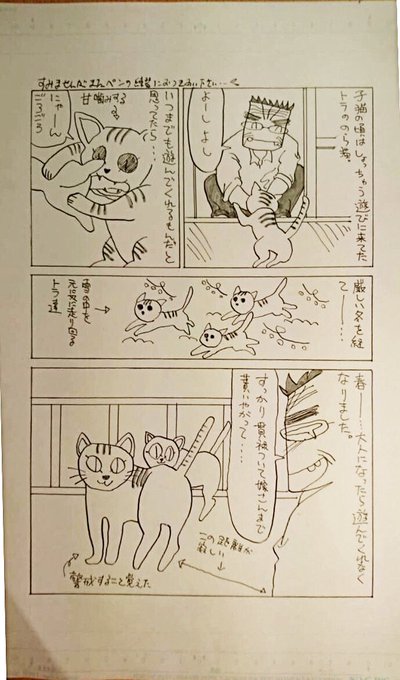 すみませんがまんペンの練習におつきあい下さい…
子猫の頃はしょっちゅう遊びに来てた
トラののら猫。
よーし よし
いつまでも遊んでくれるもんだと
思ってたら…
甘噛みする
にゃーん
ゴロゴロ
厳しい冬を経
て―…
雪の中を
元気に走り回る
トラ達
春―…大人になったら遊んでくれなく
なりました。
すっかり貫禄ついて嫁さんまで
貰いやがって…
この距離が
寂しい
警戒すること覚えた